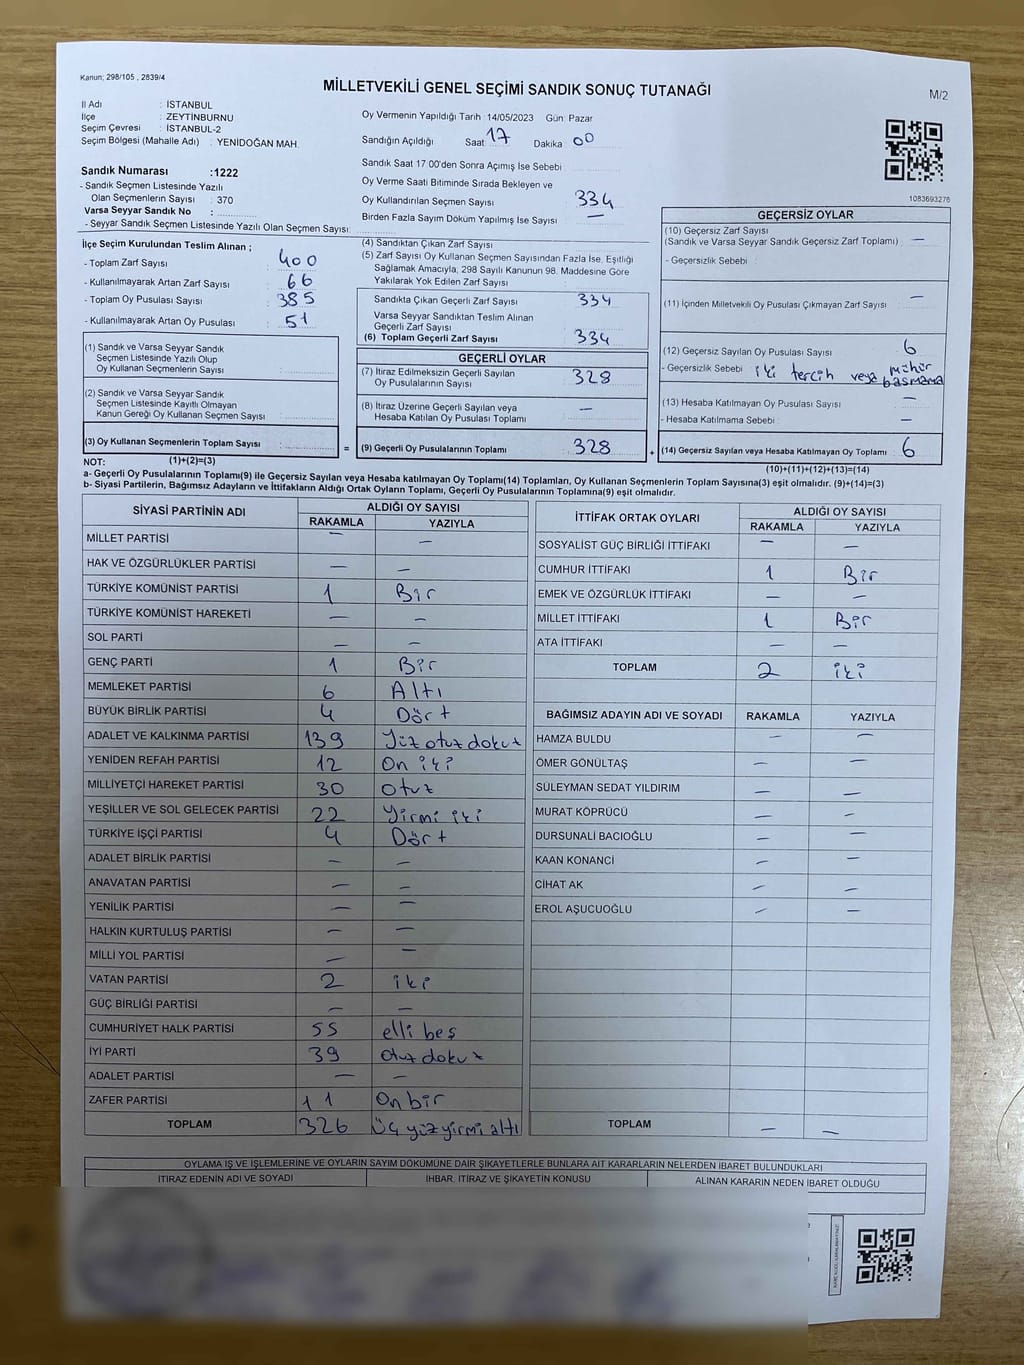 Kanun; 298/105 , 2839/4
MİLLETVEKİLİ GENEL SEÇİMİ SANDIK SONUÇ TUTANAĞI
M/2
İl Adı : İSTANBUL
İlçe : ZEYTİNBURNU
Seçim Çevresi : İSTANBUL-2
Seçim Bölgesi (Mahalle Adı) : YENİDOĞAN MAH.
Sandık Numarası :1222
- Sandık Seçmen Listesinde Yazılı
Olan Seçmenlerin Sayısı : 370
Varsa Seyyar Sandık No :
- Seyyar Sandık Seçmen Listesinde Yazılı Olan Seçmen Sayısı:
Oy Vermenin Yapıldığı Tarih 14/05/2023 Gün: Pazar
Sandığın Açıldığı Saat 17 Dakika 00
Sandık Saat 17:00'den Sonra Açımış İse Sebebi
Oy Verme Saati Bitiminde Sırada Bekleyen ve
Oy Kullandırılan Seçmen Sayısı : 334
Birden Fazla Sayım Döküm Yapılmış İse Sayısı : —
1083693276
İlçe Seçim Kurulundan Teslim Alınan ;
- Toplam Zarf Sayısı : 400
- Kullanılmayarak Artan Zarf Sayısı : 66
- Toplam Oy Pusulası Sayısı : 385
- Kullanılmayarak Artan Oy Pusulası : 51
(1) Sandık ve Varsa Seyyar Sandık
Seçmen Listesinde Yazılı Olup
Oy Kullanan Seçmenlerin Sayısı :
(2) Sandık ve Varsa Seyyar Sandık
Seçmen Listesinde Kayıtlı Olmayan
Kanun Gereği Oy Kullanan Seçmen Sayısı :
(3) Oy Kullanan Seçmenlerin Toplam Sayısı : =
(1)+(2)=(3)
(4) Sandıktan Çıkan Zarf Sayısı :
(5) Zarf Sayısı Oy Kullanan Seçmen Sayısından Fazla İse, Eşitliği
Sağlamak Amacıyla; 298 Sayılı Kanunun 98. Maddesine Göre
Yakılarak Yok Edilen Zarf Sayısı :
Sandıkta Çıkan Geçerli Zarf Sayısı : 334
Varsa Seyyar Sandıktan Teslim Alınan
Geçerli Zarf Sayısı :
(6) Toplam Geçerli Zarf Sayısı : 334
GEÇERLİ OYLAR
(7) İtiraz Edilmeksizin Geçerli Sayılan
Oy Pusulalarının Sayısı : 328
(8) İtiraz Üzerine Geçerli Sayılan veya
Hesaba Katılan Oy Pusulaları Toplamı : —
(9) Geçerli Oy Pusulalarının Toplamı : 328 +
GEÇERSİZ OYLAR
(10) Geçersiz Zarf Sayısı
(Sandık ve Varsa Seyyar Sandık Geçersiz Zarf Toplamı) : —
- Geçersizlik Sebebi :
(11) İçinden Milletvekili Oy Pusulası Çıkmayan Zarf Sayısı : —
(12) Geçersiz Sayılan Oy Pusulası Sayısı : 6
- Geçersizlik Sebebi : iki tercih veya mühür
basmama
(13) Hesaba Katılmayan Oy Pusulası Sayısı : —
- Hesaba Katılmama Sebebi : —
(14) Geçersiz Sayılan veya Hesaba Katılmayan Oy Toplamı : 6
(10)+(11)+(12)+(13)=(14)
NOT:
a- Geçerli Oy Pusulalarının Toplamı(9) ile Geçersiz Sayılan veya Hesaba katılmayan Oy Toplamı(14) Toplamları, Oy Kullanan Seçmenlerin Toplam Sayısına(3) eşit olmalıdır. (9)+(14)=(3)
b- Siyasi Partilerin, Bağımsız Adayların ve İttifakların Aldığı Ortak Oyların Toplamı, Geçerli Oy Pusulalarının Toplamına(9) eşit olmalıdır.
SİYASİ PARTİNİN ADI ALDIĞI OY SAYISI
RAKAMLA YAZIYLA
MİLLET PARTİSİ — —
HAK VE ÖZGÜRLÜKLER PARTİSİ — —
TÜRKİYE KOMÜNİST PARTİSİ 1 Bir
TÜRKİYE KOMÜNİST HAREKETİ — —
SOL PARTİ — —
GENÇ PARTİ 1 Bir
MEMLEKET PARTİSİ 6 Altı
BÜYÜK BİRLİK PARTİSİ 4 Dört
ADALET VE KALKINMA PARTİSİ 139 Yüz otuz dokuz
YENİDEN REFAH PARTİSİ 12 On iki
MİLLİYETÇİ HAREKET PARTİSİ 30 Otuz
YEŞİLLER VE SOL GELECEK PARTİSİ 22 Yirmi iki
TÜRKİYE İŞÇİ PARTİSİ 4 Dört
ADALET BİRLİK PARTİSİ — —
ANAVATAN PARTİSİ — —
YENİLİK PARTİSİ — —
HALKIN KURTULUŞ PARTİSİ — —
MİLLİ YOL PARTİSİ — —
VATAN PARTİSİ 2 iki
GÜÇ BİRLİĞİ PARTİSİ — —
CUMHURİYET HALK PARTİSİ 55 elli beş
İYİ PARTİ 39 Otuz dokuz
ADALET PARTİSİ — —
ZAFER PARTİSİ 11 On bir
TOPLAM 326 Üç yüz yirmi altı
İTTİFAK ORTAK OYLARI ALDIĞI OY SAYISI
RAKAMLA YAZIYLA
SOSYALİST GÜÇ BİRLİĞİ İTTİFAKI — —
CUMHUR İTTİFAKI 1 Bir
EMEK VE ÖZGÜRLÜK İTTİFAKI — —
MİLLET İTTİFAKI 1 Bir
ATA İTTİFAKI — —
TOPLAM 2 iki
BAĞIMSIZ ADAYIN ADI VE SOYADI RAKAMLA YAZIYLA
HAMZA BULDU — —
ÖMER GÖNÜLTAŞ — —
SÜLEYMAN SEDAT YILDIRIM — —
MURAT KÖPRÜCÜ — —
DURSUNALİ BACIOĞLU — —
KAAN KONANCİ — —
CİHAT AK — —
EROL AŞUCUOĞLU — —
TOPLAM — —
OYLAMA İŞ VE İŞLEMLERİNE VE OYLARIN SAYIM DÖKÜMÜNE DAİR ŞİKAYETLERLE BUNLARA AİT KARARLARIN NELERDEN İBARET BULUNDUKLARI
İTİRAZ EDENİN ADI VE SOYADI İHBAR, İTİRAZ VE ŞİKAYETİN KONUSU ALINAN KARARIN NEDEN İBARET OLDUĞU